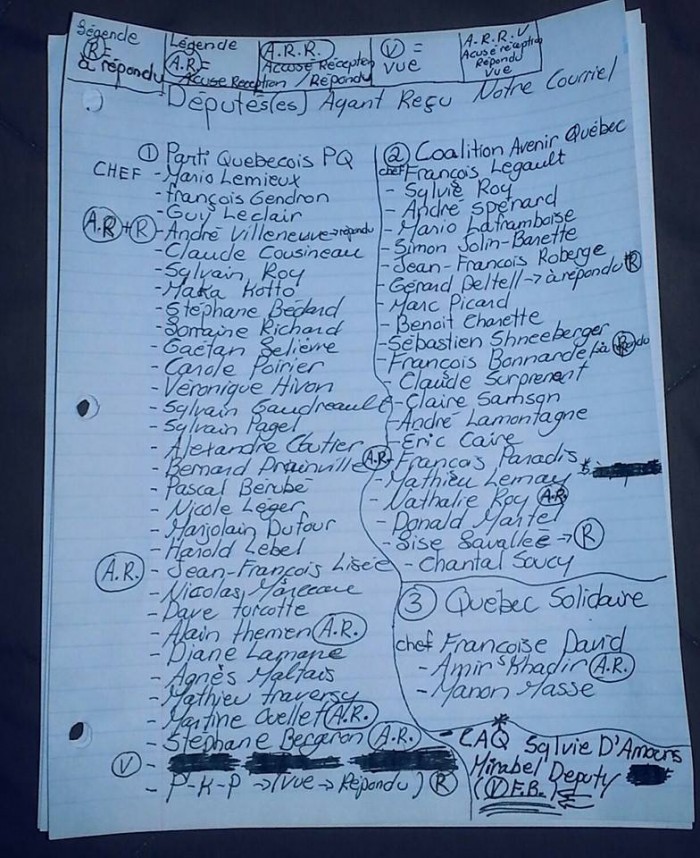 Légende
(R)=
à répondu
Légende
(A.R)=
Accuse Reception
(A.R.R.)
Accuse Réception
/Répondu
(V) =
vue
A.R.R.V
Acuse réception
Répondu
vue
Députés(es) Ayant Reçu Notre Courriel
(1) Parti Quebecois PQ
CHEF - Mario Lemieux
- françois Gendron
- Guy Leclair
(A.R)+(R) - André Villeneuve → répondu
- Claude Cousineau
- Sylvain, Roy
- Maka Kotto
- Stéphane Bédard
- Lorraine Richard
- Gaétan Lelièvre
- Carole Poirier
- Véronique Hivon
- Sylvain Gaudreault
- Sylvain Pagel
- Alexandre Cloutier
- Bernard Drainville (A.R.)
- Pascal Bérubé
- Nicole Léger
- Marjolain Dufour
- Harold Lebel
(A.R.) - Jean-François Lisée
- Nicolas, Marceau
- Dave turcotte
- Alain themen (A.R.)
- Diane Lamarre
- Agnès Maltais
- Mathieu traversy
- Martine Ouellet (A.R.)
- Stéphane Bergeron (A.R.)
(V) -
- P-K-P → (Vue → Répondu) (R)
(2) Coalition Avenir Québec
chef François Legault
- Sylvie Roy
- André Spénard
- Mario Laframboise
- Simon Jolin-Barette
- Jean-François Roberge
- Gérard Deltell → à répondu (R)
- Marc Picard
- Benoit Charette
- Sébastien Shneeberger
- François Bonnardel à (R)
- Claude Surprenant
- Claire Samson
- André Lamontagne
- Eric Caire
- François Paradis *
- Mathieu Lemay
- Nathalie Roy (A.R.)
- Donald Martel
- Lise Lavallee → (R)
- Chantal Soucy
(3) Québec Solidaire
chef Francoise David
- Amir Khadir (A.R.)
- Manon Masse
*
- CAQ Sylvie D'Amours
Mirabel Deputy
((V) F.B.)